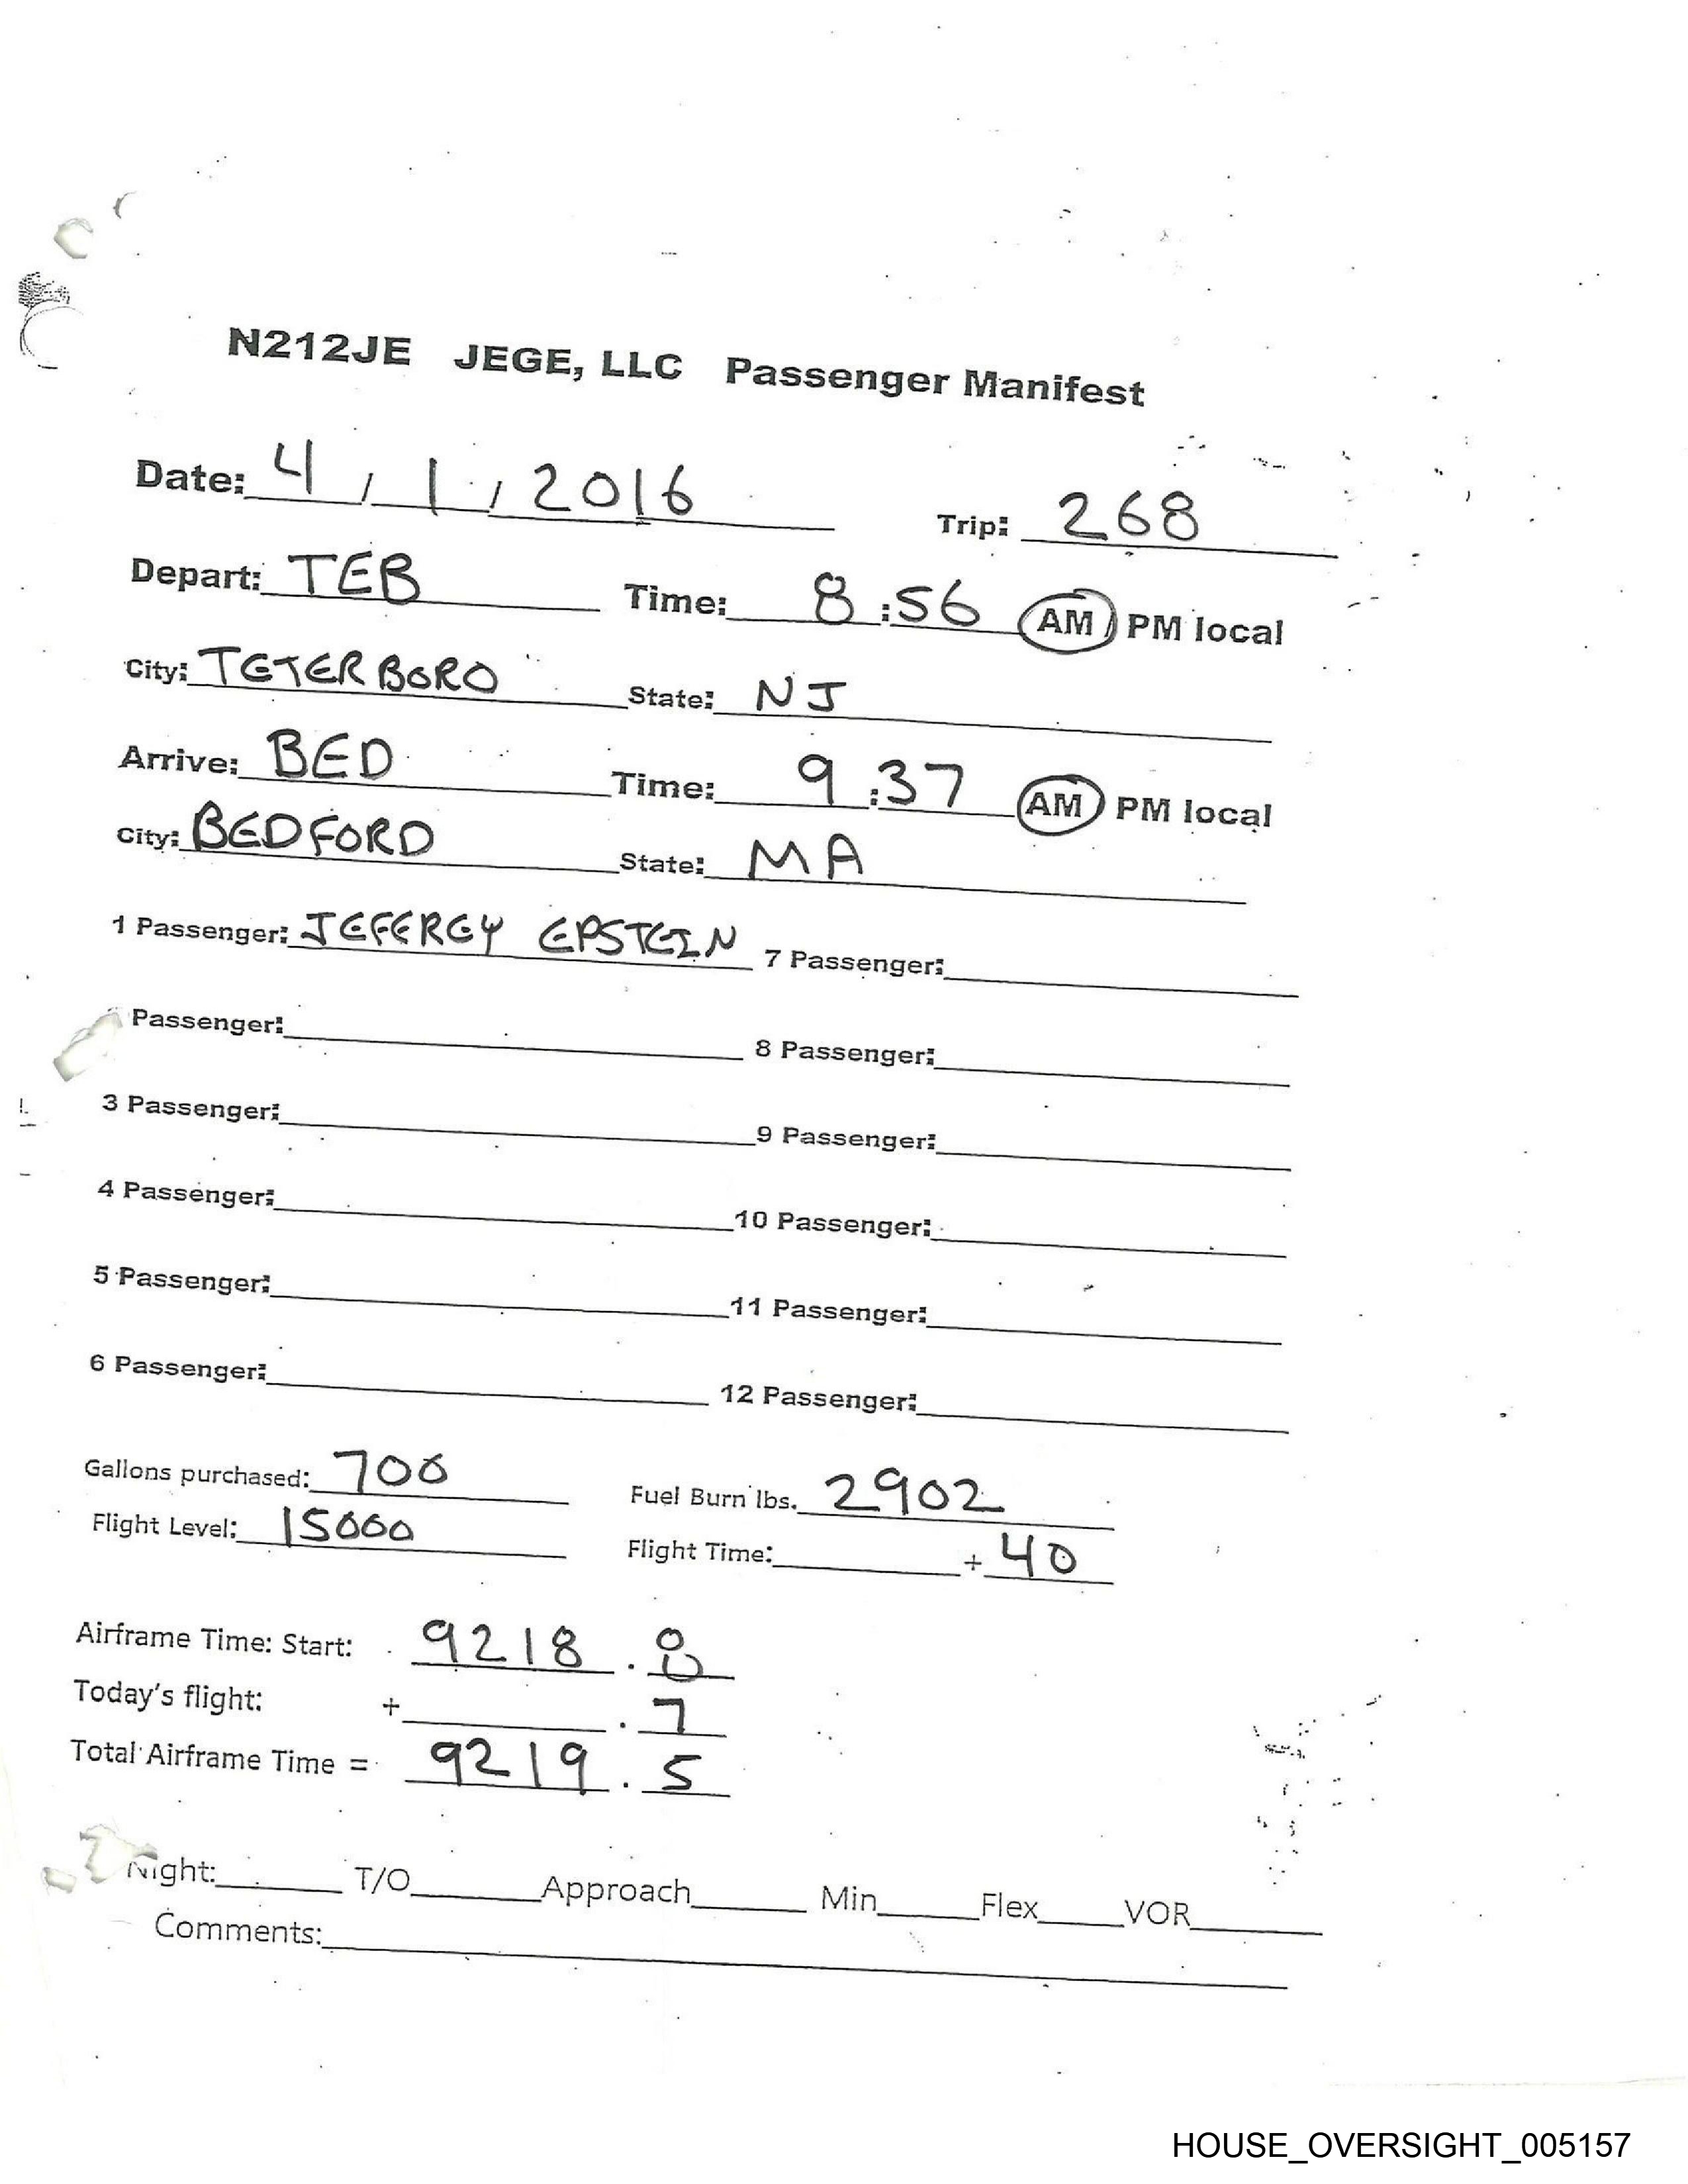 N212JE JEGE, LLC Passenger Manifest
Date: 4 / 1 / 2016 Trip: 268
Depart: TEB Time: 8:56 AM / PM local
City: TETERBORO State: NJ
Arrive: BED Time: 9:37 AM / PM local
City: BEDFORD State: MA
1 Passenger: JEFEREY EPSTEIN 7 Passenger:
Passenger: 8 Passenger:
3 Passenger: 9 Passenger:
4 Passenger: 10 Passenger:
5 Passenger: 11 Passenger:
6 Passenger: 12 Passenger:
Gallons purchased: 700 Fuel Burn lbs. 2902
Flight Level: 15000 Flight Time: + 40
Airframe Time: Start: 9218 . 8
Today's flight: + . 7
Total Airframe Time = 9219 . 5
Night: T/O Approach Min Flex VOR
Comments:
HOUSE_OVERSIGHT_005157